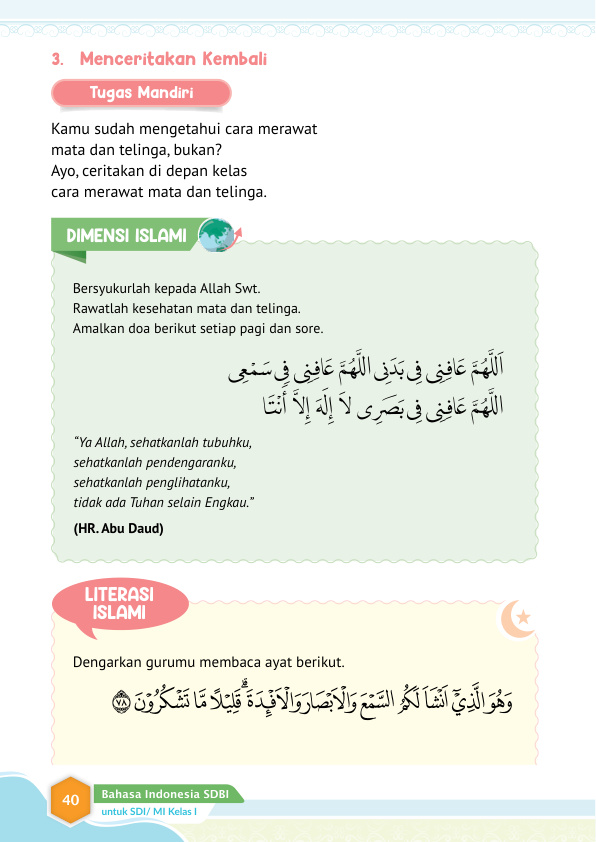 3. Menceritakan Kembali
Tugas Mandiri
Kamu sudah mengetahui cara merawat
mata dan telinga, bukan?
Ayo, ceritakan di depan kelas
cara merawat mata dan telinga.
DIMENSI ISLAMI
Bersyukurlah kepada Allah Swt.
Rawatlah kesehatan mata dan telinga.
Amalkan doa berikut setiap pagi dan sore.
اَللَّهُمَّ عَافِنِى فِى بَدَنِى اللَّهُمَّ عَافِنِى فِى سَمْعِى
اللَّهُمَّ عَافِنِى فِى بَصَرِى لاَ إِلَهَ إِلاَّ أَنْتَا
“Ya Allah, sehatkanlah tubuhku,
sehatkanlah pendengaranku,
sehatkanlah penglihatanku,
tidak ada Tuhan selain Engkau.”
(HR. Abu Daud)
LITERASI
ISLAMI
Dengarkan gurumu membaca ayat berikut.
وَهُوَ الَّذِيْٓ اَنْشَاَ لَكُمُ السَّمْعَ وَالْاَبْصَارَ وَالْاَفْـِٕدَةَۗ قَلِيْلًا مَّا تَشْكُرُوْنَ ٧٨
40
Bahasa Indonesia SDBI
untuk SDI/ MI Kelas I